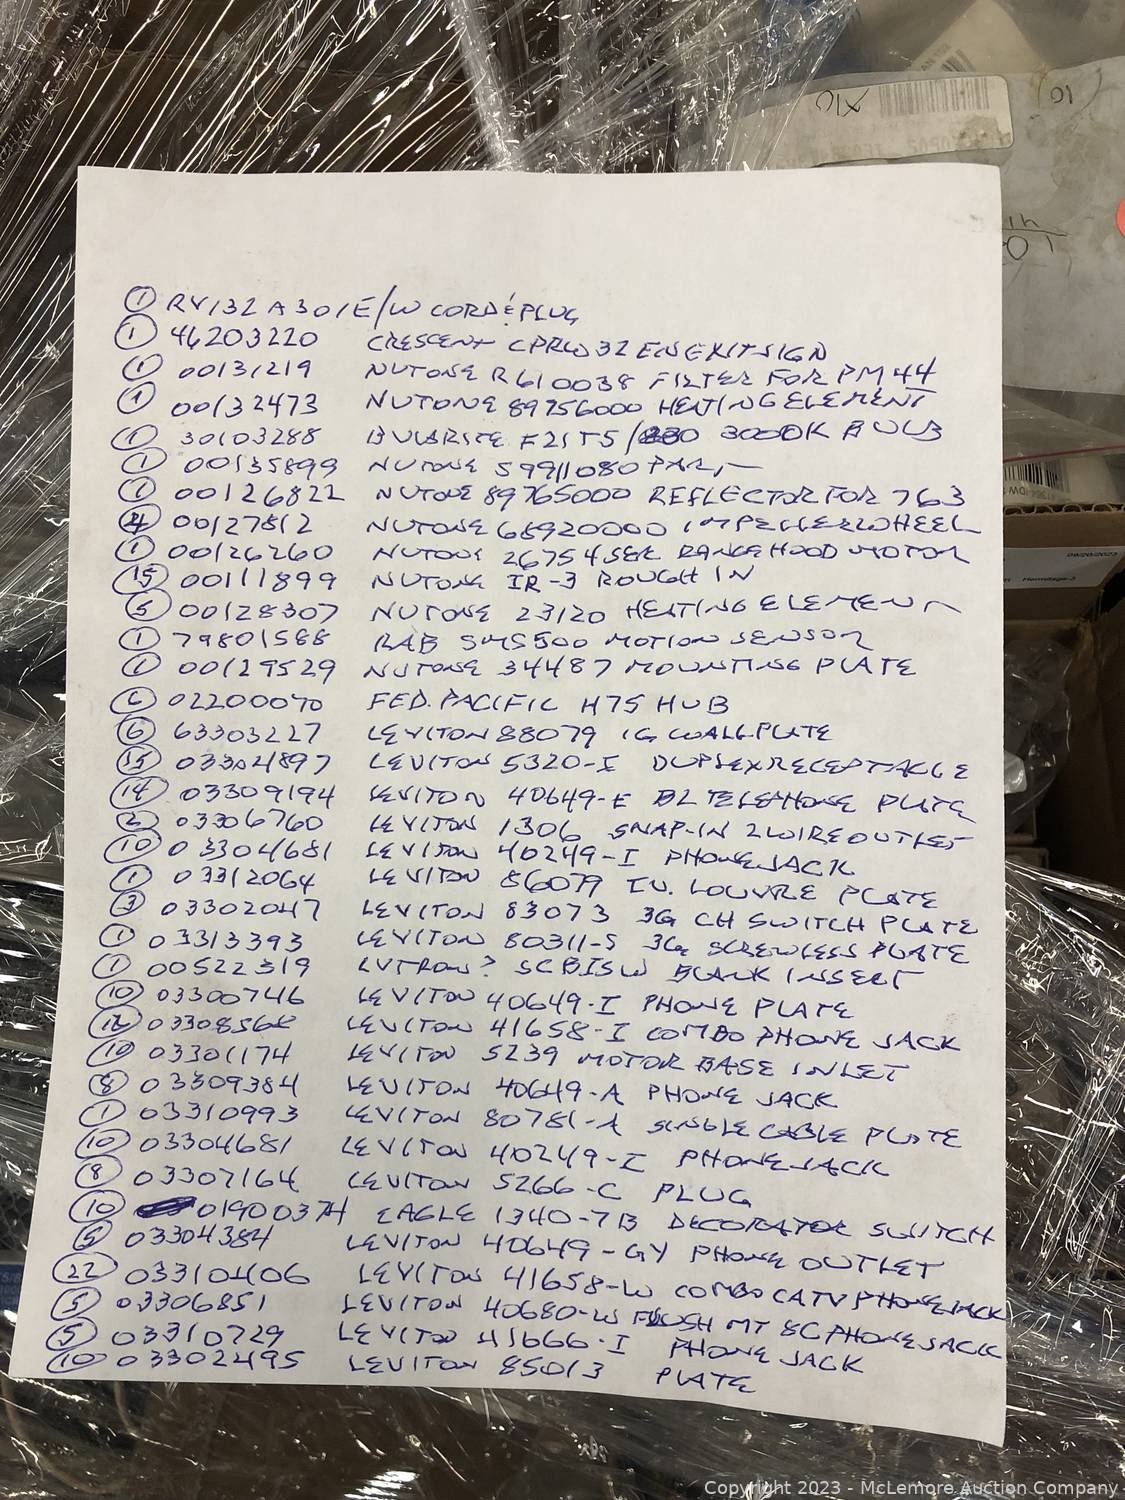 ① RV132A301E/W CORD & PLUG
① 46203220 CRESCENT CPRW32EN EXIT SIGN
① 00131219 NUTONE R610038 FILTER FOR PM44
① 00132473 NUTONE 89756000 HEATING ELEMENT
① 30103288 BULBRITE F21T5/830 3000K BULB
① 00135899 NUTONE S9911080 PART
① 00126822 NUTONE 89765000 REFLECTOR FOR 763
④ 00127812 NUTONE 68920000 IMPELLER WHEEL
① 00126260 NUTONE 26754SER RANGE HOOD MOTOR
⑮ 00111899 NUTONE IR-3 ROUGH IN
⑤ 00128307 NUTONE 23120 HEATING ELEMENT
① 79801588 RAB SMS500 MOTION SENSOR
① 00129529 NUTONE 34487 MOUNTING PLATE
⑥ 02200070 FED. PACIFIC H75 HUB
⑥ 63303227 LEVITON 88079 1G WALL PLATE
⑮ 03304897 LEVITON 5320-I DUPLEX RECEPTACLE
⑭ 03309194 LEVITON 40649-E BL TELEPHONE PLATE
03306760 LEVITON 1306 SNAP-IN 2 WIRE OUTLET
⑩ 03304681 LEVITON 40249-I PHONE JACK
① 03312064 LEVITON 86079 IV. LOUVRE PLATE
③ 03302047 LEVITON 83073 3G CH SWITCH PLATE
① 03313393 LEVITON 80311-S 3G SCREWLESS PLATE
① 00522319 LUTRON? SCBISW BLANK INSERT
⑩ 03300746 LEVITON 40649-I PHONE PLATE
LEVITON 41658-I COMBO PHONE JACK
⑩ 03301174 LEVITON 5239 MOTOR BASE INLET
⑧ 03309384 LEVITON 40649-A PHONE JACK
① 03310993 LEVITON 80781-A SINGLE CABLE PLATE
⑩ 03304681 LEVITON 40249-I PHONE JACK
⑧ 03307164 LEVITON 5266-C PLUG
⑩ 01900374 EAGLE 1340-7B DECORATOR SWITCH
⑤ 03304384 LEVITON 40649-GY PHONE OUTLET
㉒ 03310406 LEVITON 41658-W COMBO CATV PHONE JACK
⑤ 03306851 LEVITON 40680-W FLUSH MT 8C PHONE JACK
⑤ 03310729 LEVITON 41666-I PHONE JACK
⑩ 03302495 LEVITON 85013 PLATE
Copyright 2023 - McLemore Auction Company